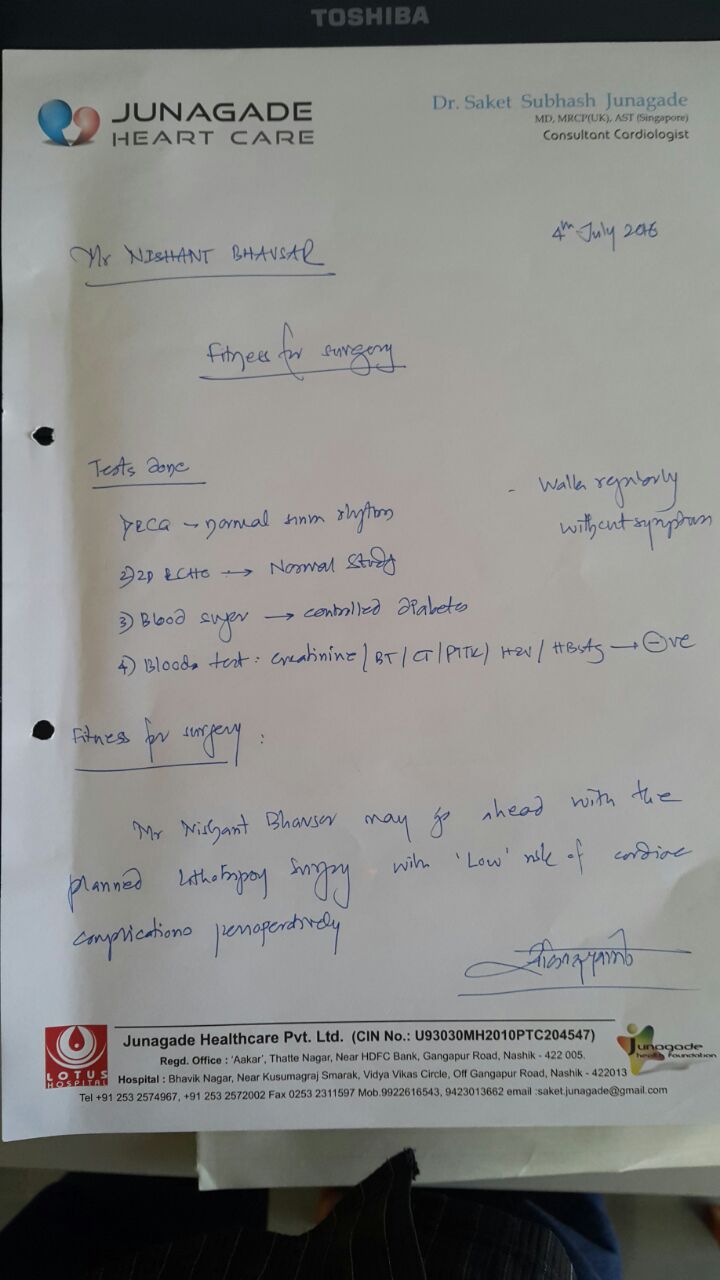 TOSHIBA
JUNAGADE
HEART CARE
Dr. Saket Subhash Junagade
MD, MRCP(UK), AST (Singapore)
Consultant Cardiologist
4th July 2016
Mr NISHANT BHAVSAR
Fitness for surgery
Tests done
- Walks regularly
without symptoms
1) ECG → normal sinus rhythm
2) 2D ECHO → Normal Study
3) Blood sugar → controlled diabetes
4) Blood test : creatinine / BT / CT / PTTK / HIV / HBsAg → ⊖ve
Fitness for surgery :
Mr Nishant Bhavsar may go ahead with the
planned lithotripsy surgery with 'Low' risk of cardiac
complications perioperatively
LOTUS
HOSPITAL
Junagade Healthcare Pvt. Ltd. (CIN No.: U93030MH2010PTC204547)
Regd. Office : 'Aakar', Thatte Nagar, Near HDFC Bank, Gangapur Road, Nashik - 422 005.
Hospital : Bhavik Nagar, Near Kusumagraj Smarak, Vidya Vikas Circle, Off Gangapur Road, Nashik - 422013
Tel +91 253 2574967, +91 253 2572002 Fax 0253 2311597 Mob.9922616543, 9423013662 email :saket.junagade@gmail.com
Junagade
health foundation